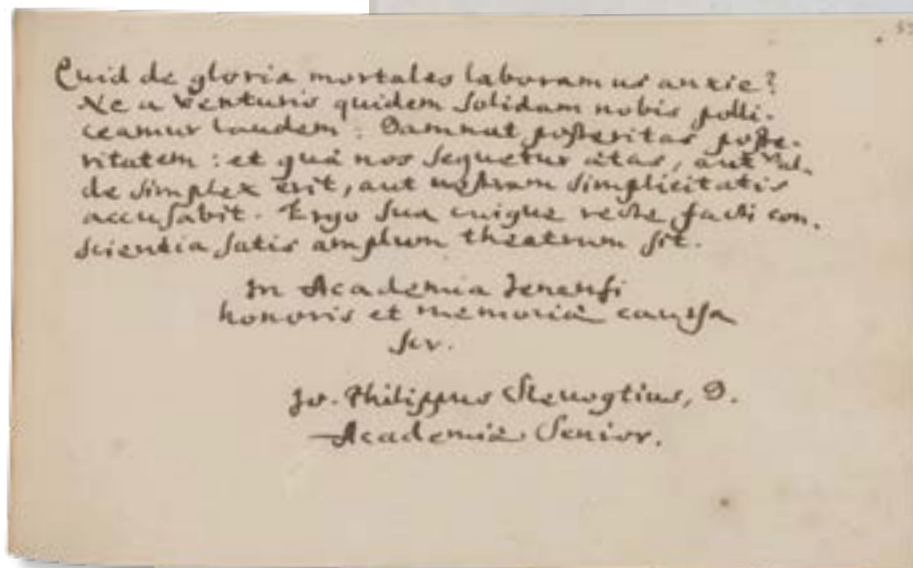 Quid de gloria mortales laboramus anxie?
Ne a venturis quidem solidam nobis polli-
ceamur laudem: Damnat posteritas poste-
ritatem: et quæ nos sequetur ætas, aut val-
de simplex erit, aut nostram simplicitatis
accusabit. Ergo sua cuique recte facti con-
scientia satis amplum theatrum sit.
In Academia Jenensi
honoris et memoriæ caussa
scr.
Jo. Philippus Slevogtius, D.
Academiæ Senior.